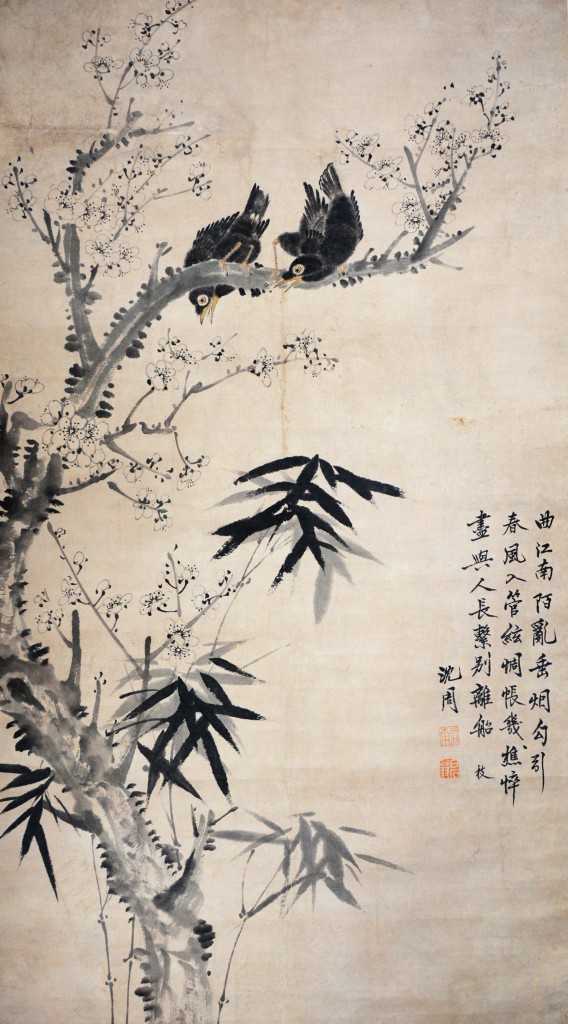 曲江南陌亂垂烟勾引
春風入管絃惆悵幾樵悴
盡與人長繫別離船 枝
沈周